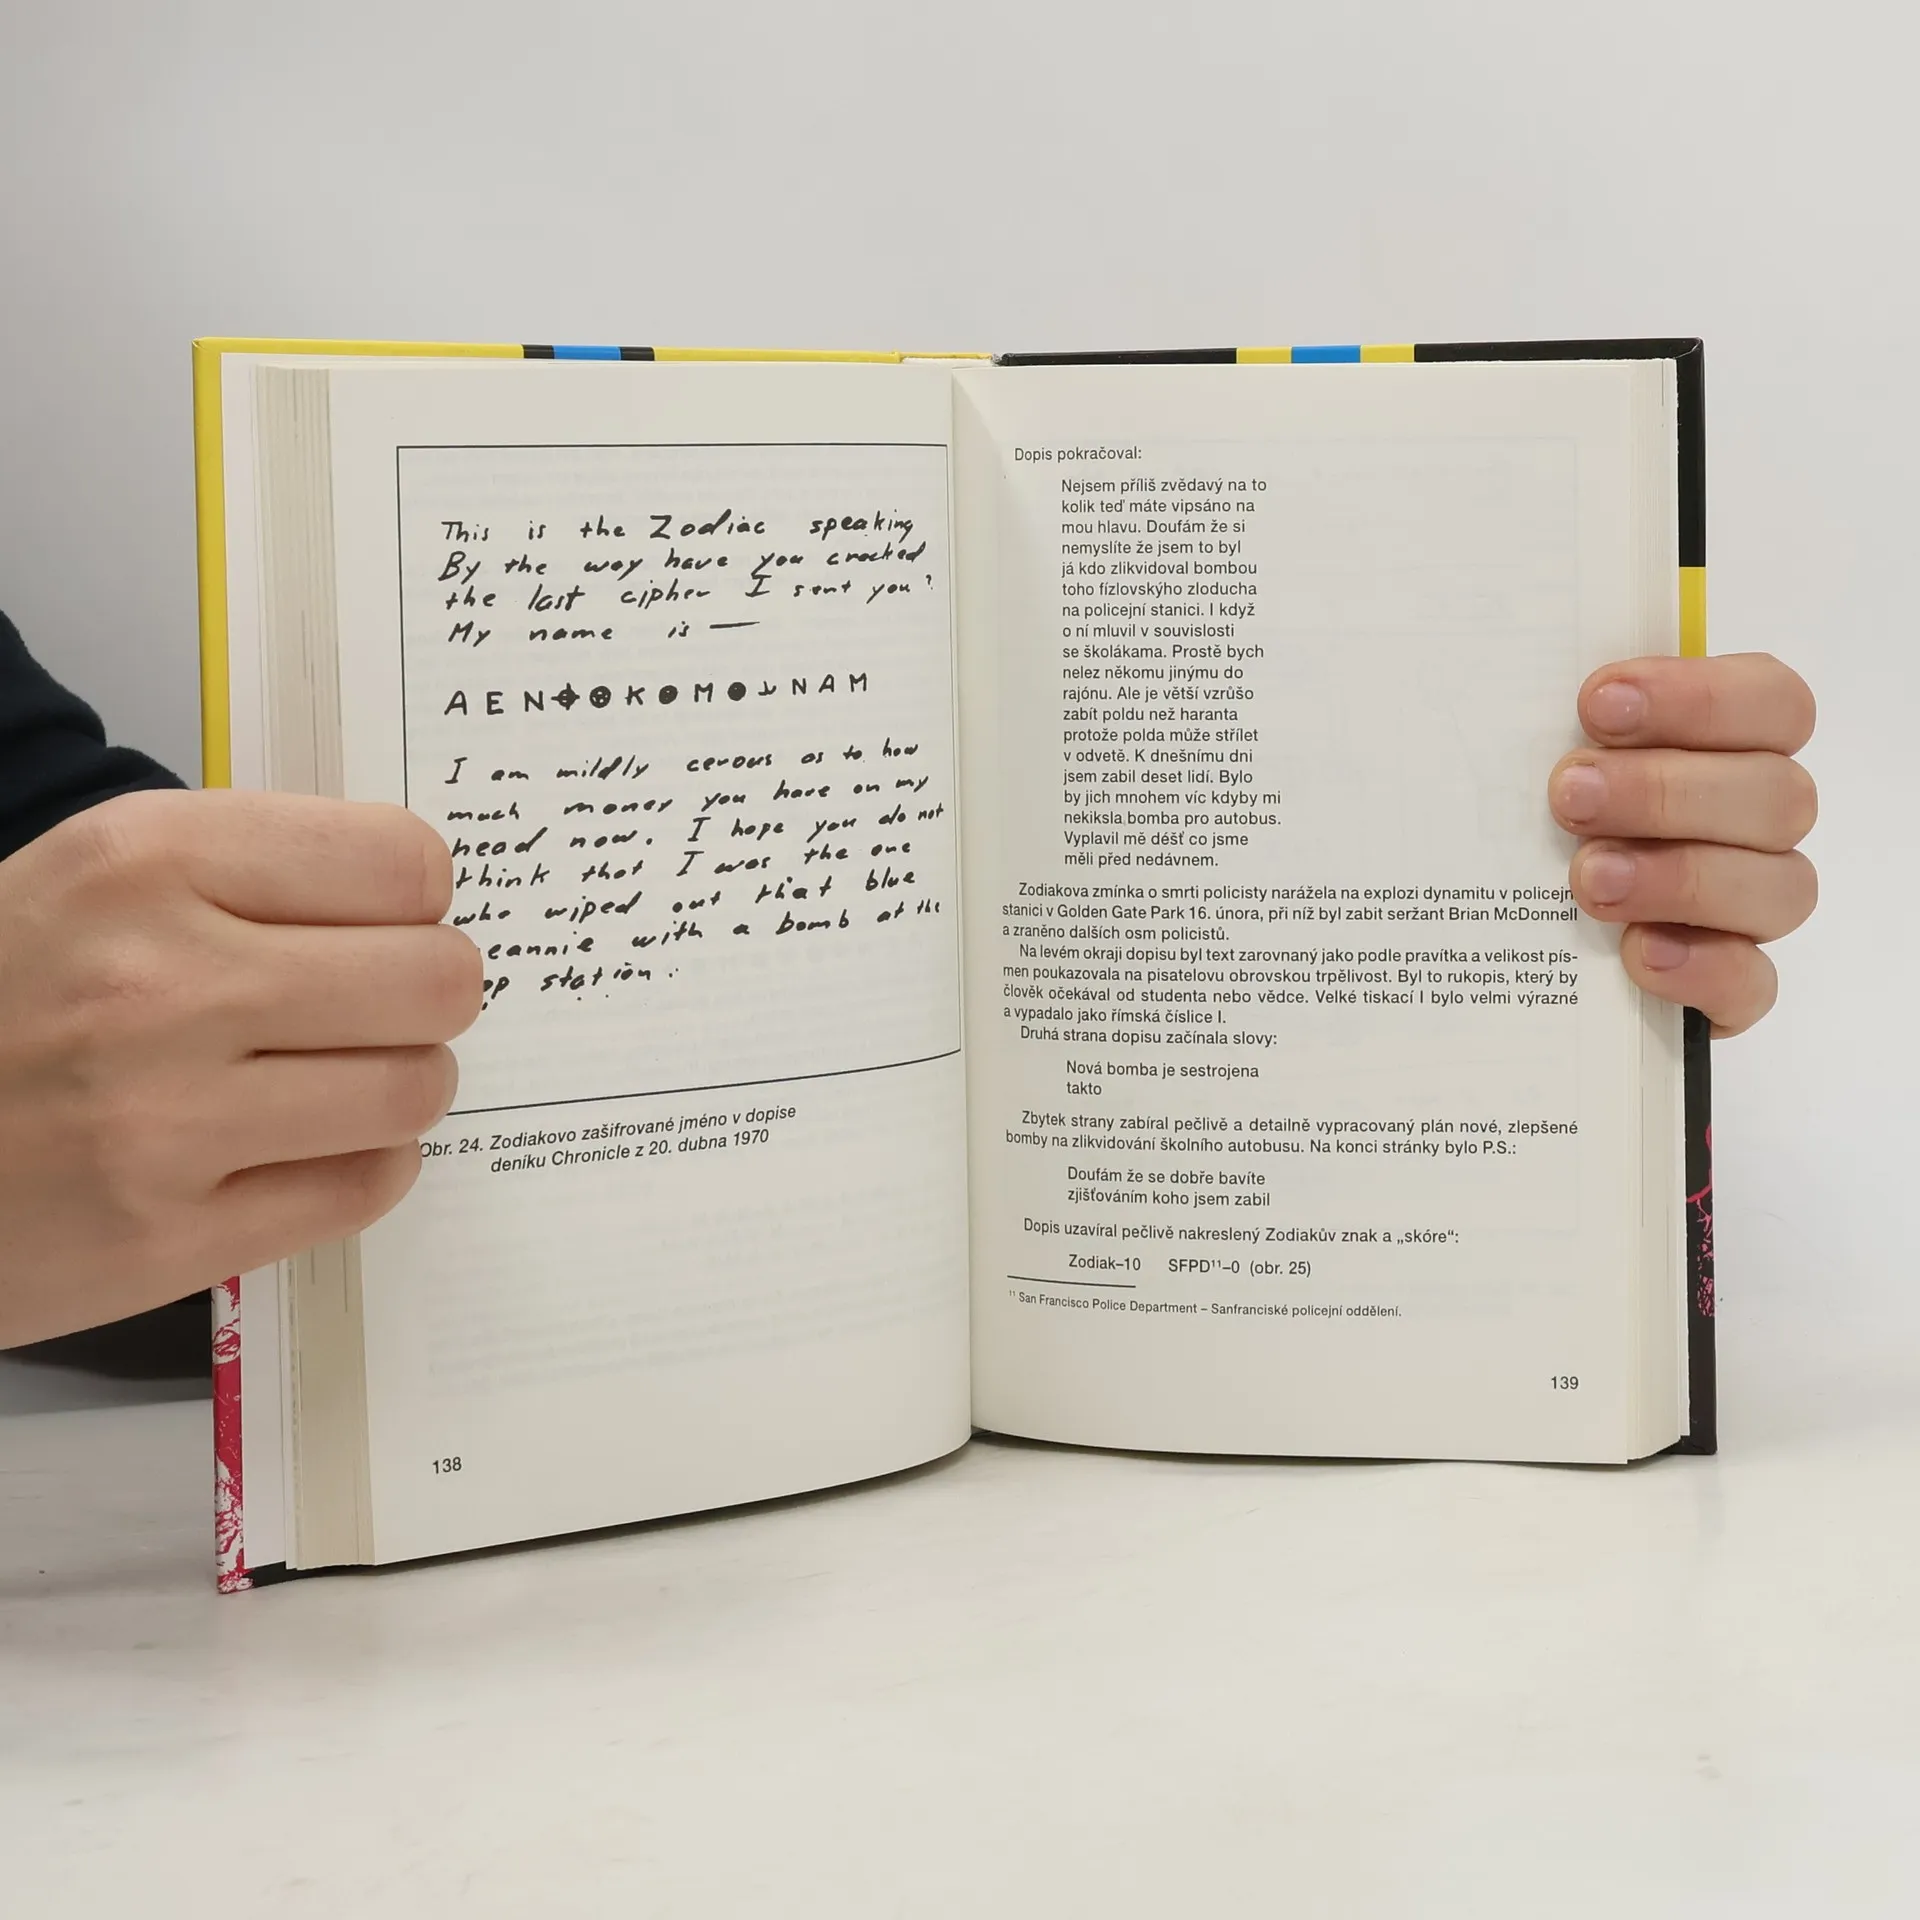 This is the Zodiac speaking
By the way have you cracked
the last cipher I sent you?
My name is —
A E N K M N A M
I am mildly cerous as to how
much money you have on my
head now. I hope you do not
think that I was the one
who wiped out that blue
eannie with a bomb at the
op station.
Obr. 24. Zodiakovo zašifrované jméno v dopise
deníku Chronicle z 20. dubna 1970
138
Dopis pokračoval:
Nejsem příliš zvědavý na to
kolik teď máte vipsáno na
mou hlavu. Doufám že si
nemyslíte že jsem to byl
já kdo zlikvidoval bombou
toho fízlovskýho zloducha
na policejní stanici. I když
o ní mluvil v souvislosti
se školákama. Prostě bych
nelez někomu jinýmu do
rajónu. Ale je větší vzrůšo
zabít poldu než haranta
protože polda může střílet
v odvetě. K dnešnímu dni
jsem zabil deset lidí. Bylo
by jich mnohem víc kdyby mi
nekiksla bomba pro autobus.
Vyplavil mě déšť co jsme
měli před nedávnem.
Zodiakova zmínka o smrti policisty narážela na explozi dynamitu v policejn
stanici v Golden Gate Park 16. února, při níž byl zabit seržant Brian McDonnell
a zraněno dalších osm policistů.
Na levém okraji dopisu byl text zarovnaný jako podle pravítka a velikost pís-
men poukazovala na pisatelovu obrovskou trpělivost. Byl to rukopis, který by
člověk očekával od studenta nebo vědce. Velké tiskací I bylo velmi výrazné
a vypadalo jako římská číslice I.
Druhá strana dopisu začínala slovy:
Nová bomba je sestrojena
takto
Zbytek strany zabíral pečlivě a detailně vypracovaný plán nové, zlepšené
bomby na zlikvidování školního autobusu. Na konci stránky bylo P.S.:
Doufám že se dobře bavíte
zjišťováním koho jsem zabil
Dopis uzavíral pečlivě nakreslený Zodiakův znak a „skóre“:
Zodiak–10 SFPD¹¹–0 (obr. 25)
¹¹ San Francisco Police Department – Sanfranciské policejní oddělení.
139